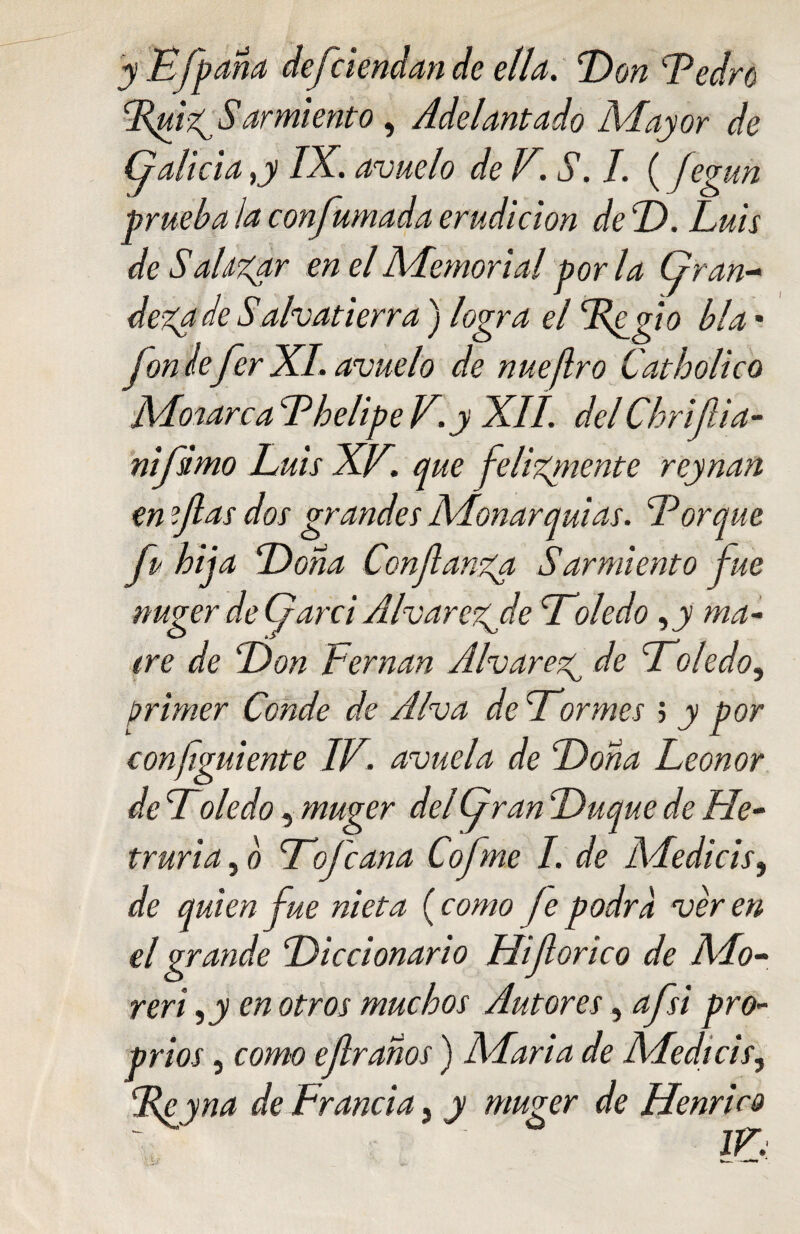 y Eſpaña deſciendan de ella. Don Pedro
Ruiz Sarmiento, Adelantado Mayor de
Galicia, y IX. avuelo de V. S. I. (ſegun
prueba la conſumada erudicion de D. Luis
de Salazar en el Memorial por la Gran-
deza de Salvatierra) logra el Regio bla-
ſon de ſer XI. avuelo de nueſtro Catholico
Monarca Phelipe V. y XII. del Chriſtia-
niſsimo Luis XV. que felizmente reynan
en eſtas dos grandes Monarquias. Porque
ſu hija Doña Conſtanza Sarmiento fue
muger de Garci Alvarez de Toledo, y ma-
dre de Don Fernan Alvarez de Toledo,
primer Conde de Alva de Tormes; y por
conſiguiente IV. avuela de Doña Leonor
de Toledo, muger del Gran Duque de He-
truria, ò Toſcana Coſme I. de Medicis,
de quien fue nieta (como ſe podrà vèr en
el grande Diccionario Hiſtorico de Mo-
reri, y en otros muchos Autores, aſsi pro-
prios, como eſtraños) Maria de Medicis,
Reyna de Francia, y muger de Henrico
IV.